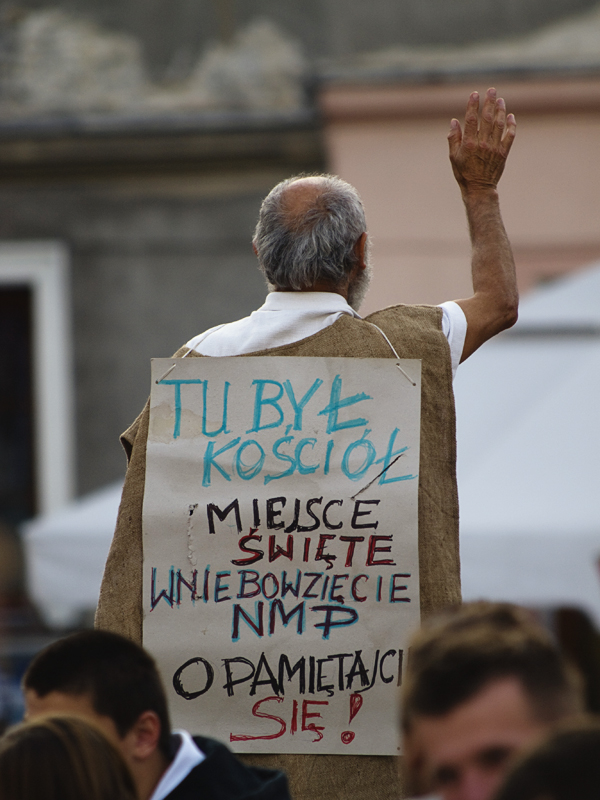 TU BYŁ
KOŚCIÓŁ
MIEJSCE
ŚWIĘTE
WNIEBOWZIĘCIE
NMP
OPAMIĘTAJCI
SIĘ!